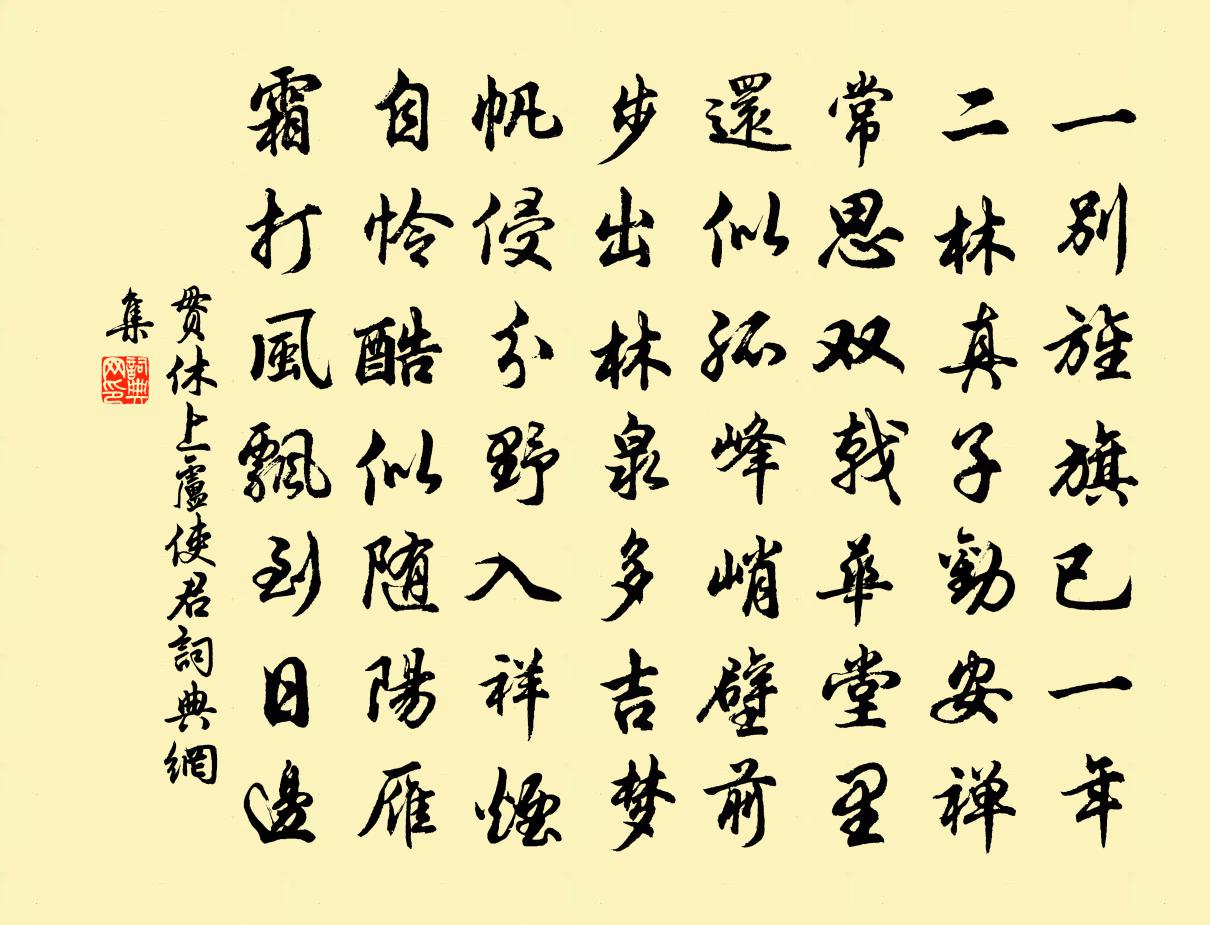 一别旌旗已一年
二林真子勸安禅
常思双戟華堂里
還似孤峰峭壁前
步出林泉多吉梦
帆侵分野入祥煙
自怜酷似随陽雁
霜打風飄到日邊
贯休上盧使君詞典網
集
詞典
网印